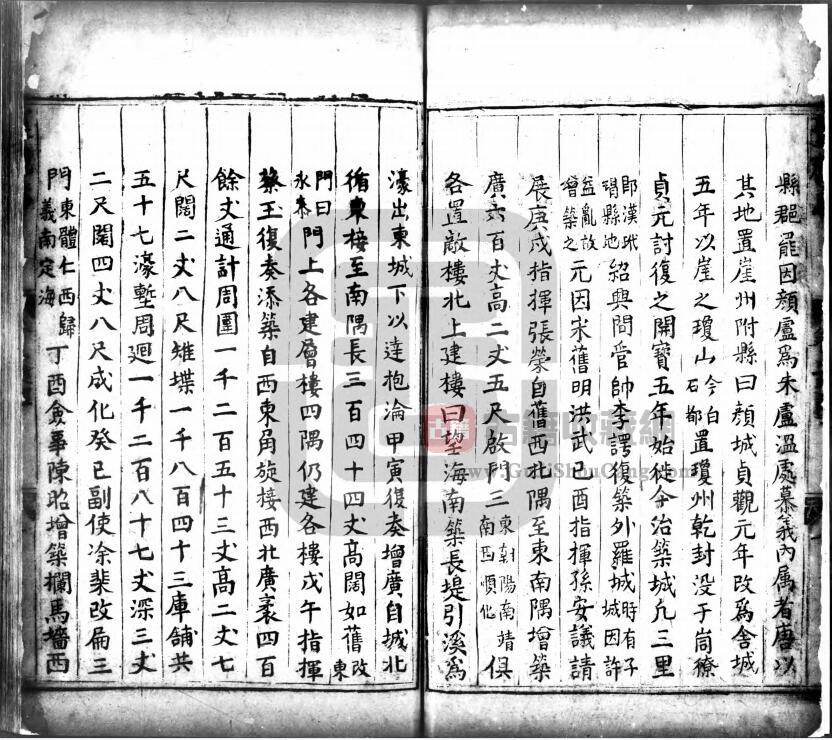 縣郡罷因顏盧爲朱盧温處慕義內属者唐以
其地置崖州附縣曰顏城貞觀元年改爲舍城
五年以崖之瓊山今白石都置瓊州乾封没于峝獠
貞元討復之開寶五年始徙今治築城凢三里
即漢玳瑁縣地紹興間管帥李諤復築外羅城時有子城因許
益亂故曾築之元因宋舊明洪武己酉指揮孫安議請
展庚戌指揮張榮自舊西北隅至東南隅增築
廣六百丈高二丈五尺啟門三東朝陽南靖南西順化俱
各置敵樓北上建樓曰望海南築長堤引溪爲
濠出東城下以達抱淪甲寅復奏增廣自城北
循東接至南隅長三百四十四丈高闊如舊改東
門曰永泰門上各建層樓四隅仍建各樓戊午指揮
蔡玉復奏添築自西東角旋接西北廣袤四百
餘丈通計周圍一千二百五十三丈高二丈七
尺闊二丈八尺雉堞一千八百四十三庫鋪共
五十七濠塹周廻一千二百八十七丈深三丈
二尺闊四丈八尺成化癸巳副使凃棐改扁三
門東體仁西歸義南定海丁酉僉事陳昭增築欄馬墻西
古籍 古籍收藏網
www.GuJiShouCang.com